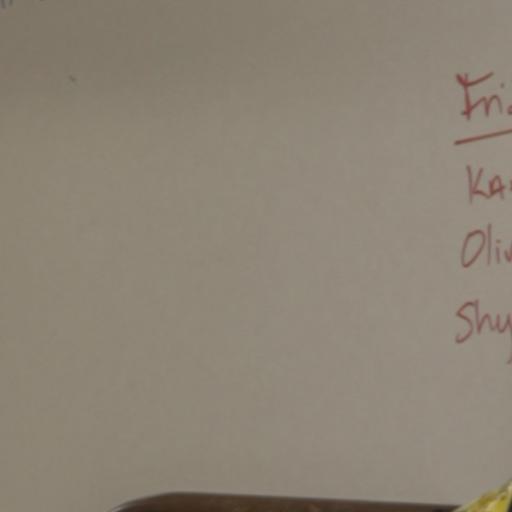 Fri
KA
Oli
Shy